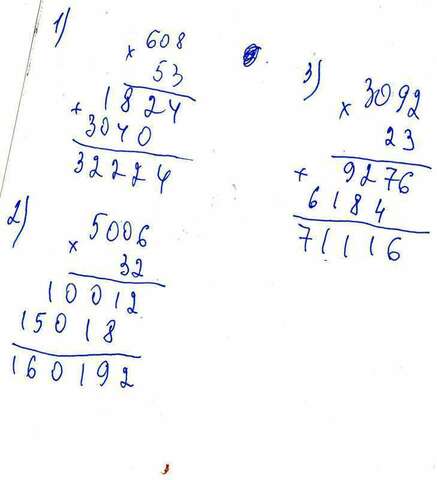 1)
× 608
53
+ 1824
3040
32224
2)
× 5006
32
10012
15018
160192
3)
× 3092
23
+ 9276
6184
71116